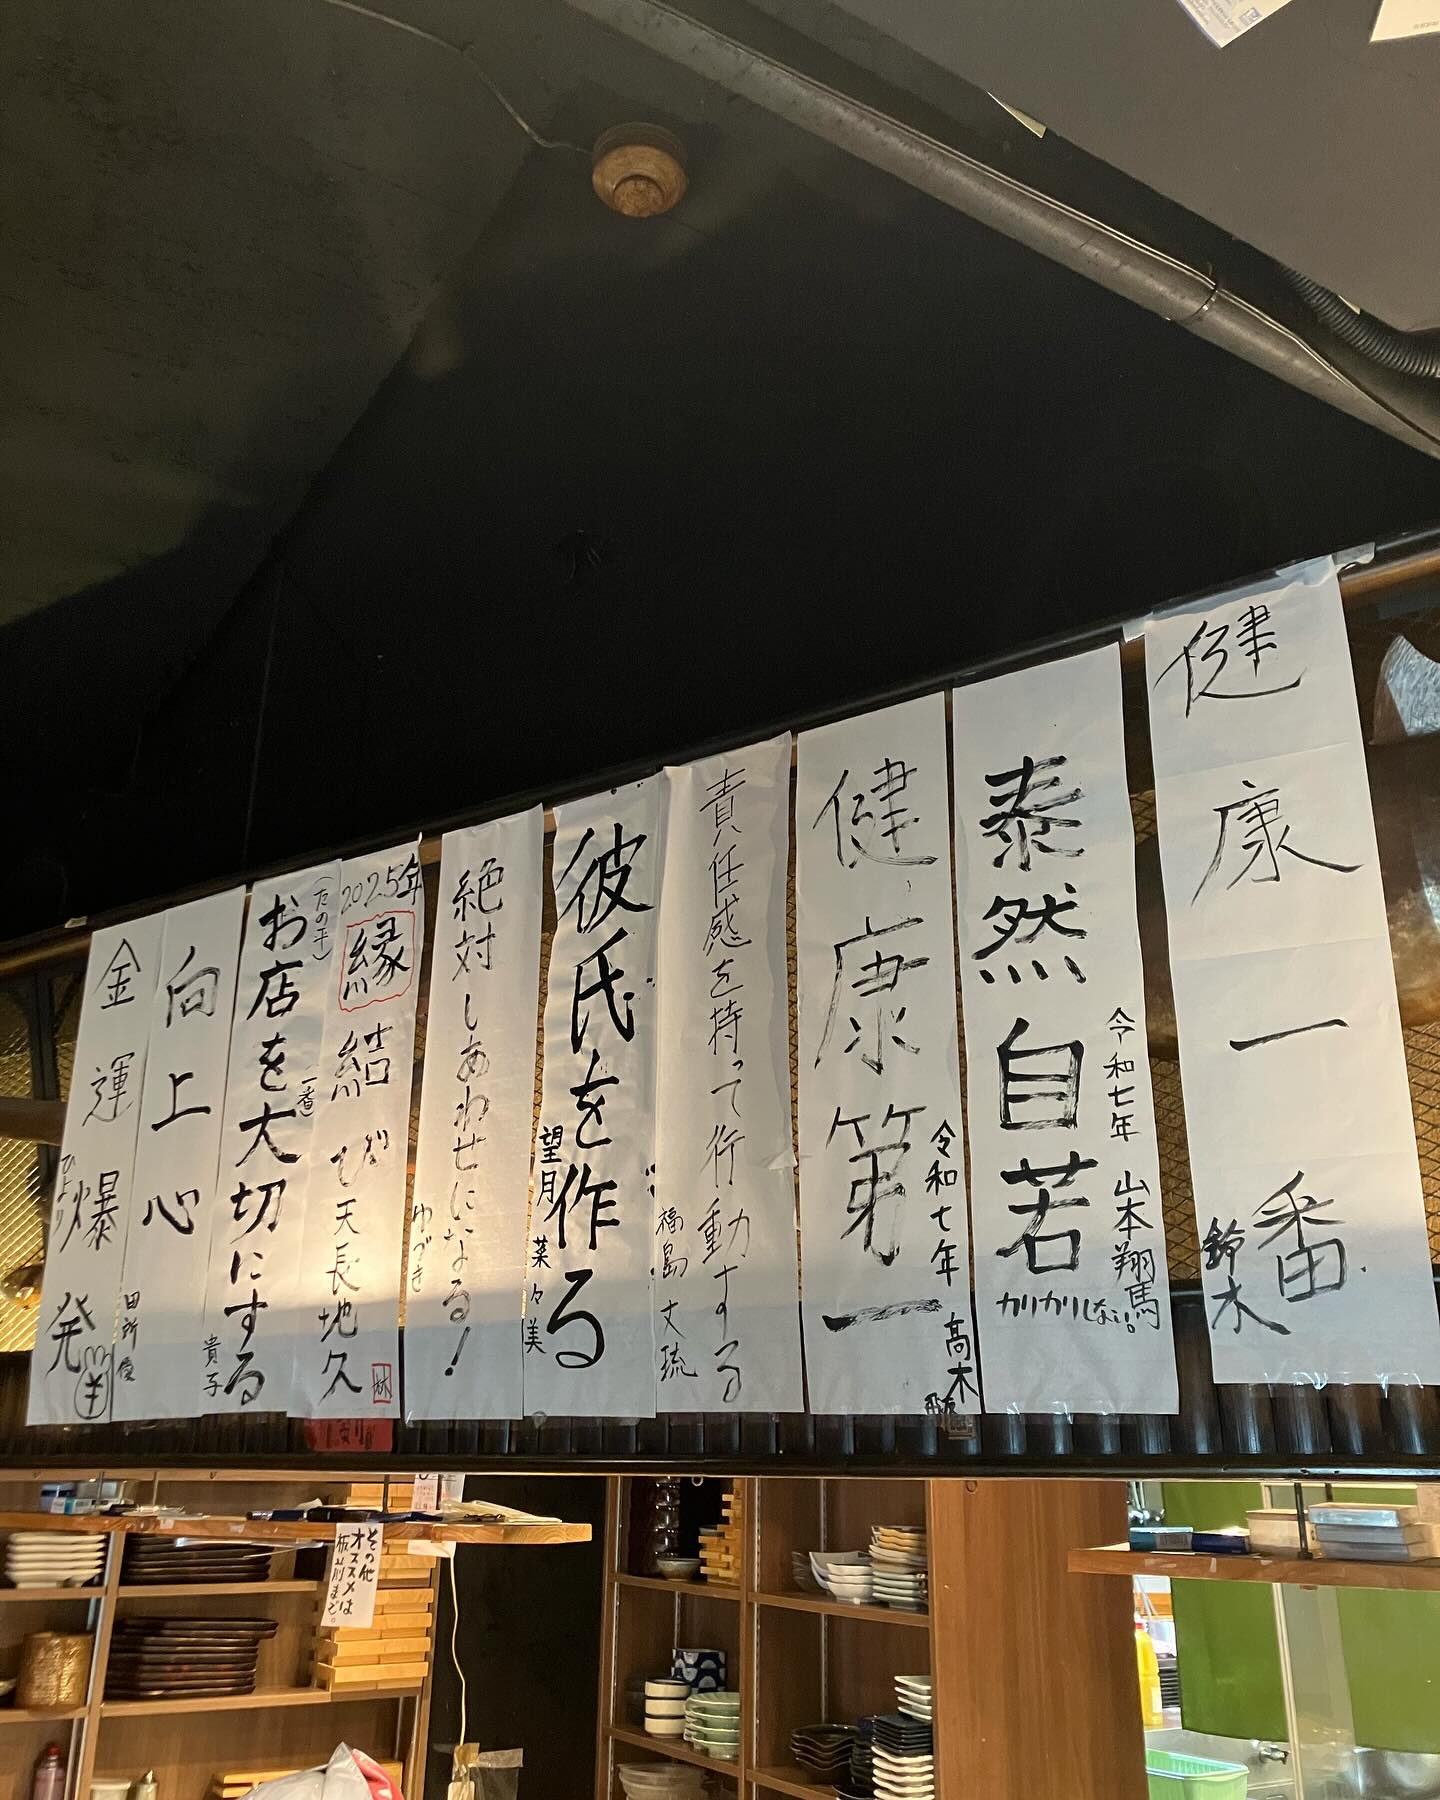 健康一番
鈴木
泰然自若
令和七年 山本翔馬
カリカリしない!。
健康第一
令和七年 高木
責任感を持って行動する
福島 丈琉
彼氏を作る
望月 菜々美
絶対しあわせになる!
ゆづき
2025年
縁結び天長地久
林
(たの平)
お店を大切にする
一番)
貴子
向上心
田所優
金運爆発
ひより
¥
その他
オススメは
板前まで。